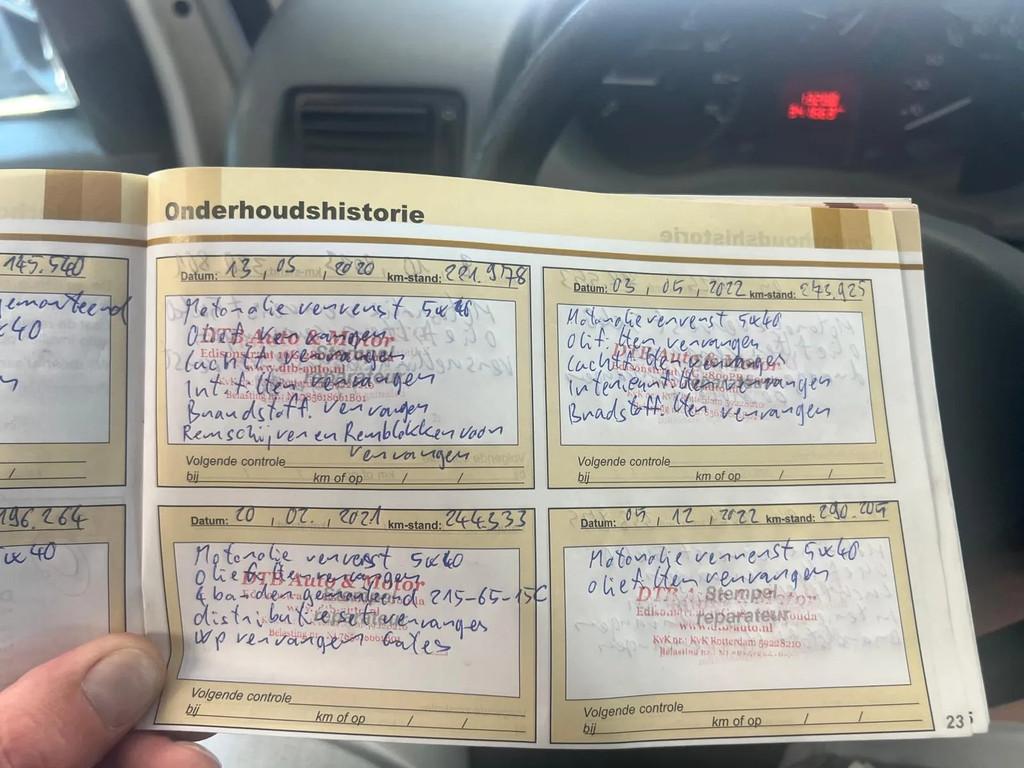 Onderhoudshistorie
145.540
gemonteerd
x40
n
196.264
5x40
Datum: 13 , 05 , 2020 km-stand: 221.978
Motorolie ververst 5x40
vervangen
Lucht f. vervangen
Int filter vervangen
Brandstoff. vervangen
Remschijven en Remblokken voor
vervangen
DTB Auto & Motor
www.dtb-auto.nl
Volgende controle
bij km of op / /
Datum: 03 , 05 , 2022 km-stand: 273.925
Motorolie ververst 5x40
Olifilter vervangen
Luchtfilter vervangen
Interieurfilter vervangen
Bradstoffilter vervangen
Volgende controle
bij km of op / /
Datum: 20 , 02 , 2021 km-stand: 244333
Motorolie ververst 5x40
Oliefilter vervangen
4 banden gemonteerd 215-65-15C
distributieset vervanges
wp vervangen
DTB Auto & Motor
Volgende controle
bij km of op / /
Datum: 05 , 12 , 2022 km-stand: 290.205
Motorolie ververst 5x40
oliefilter vervangen
DTB
Stempel
reparateur
www.dtb-auto.nl
KvK nr.: KvK Rotterdam 59228210
Volgende controle
bij km of op / /
23